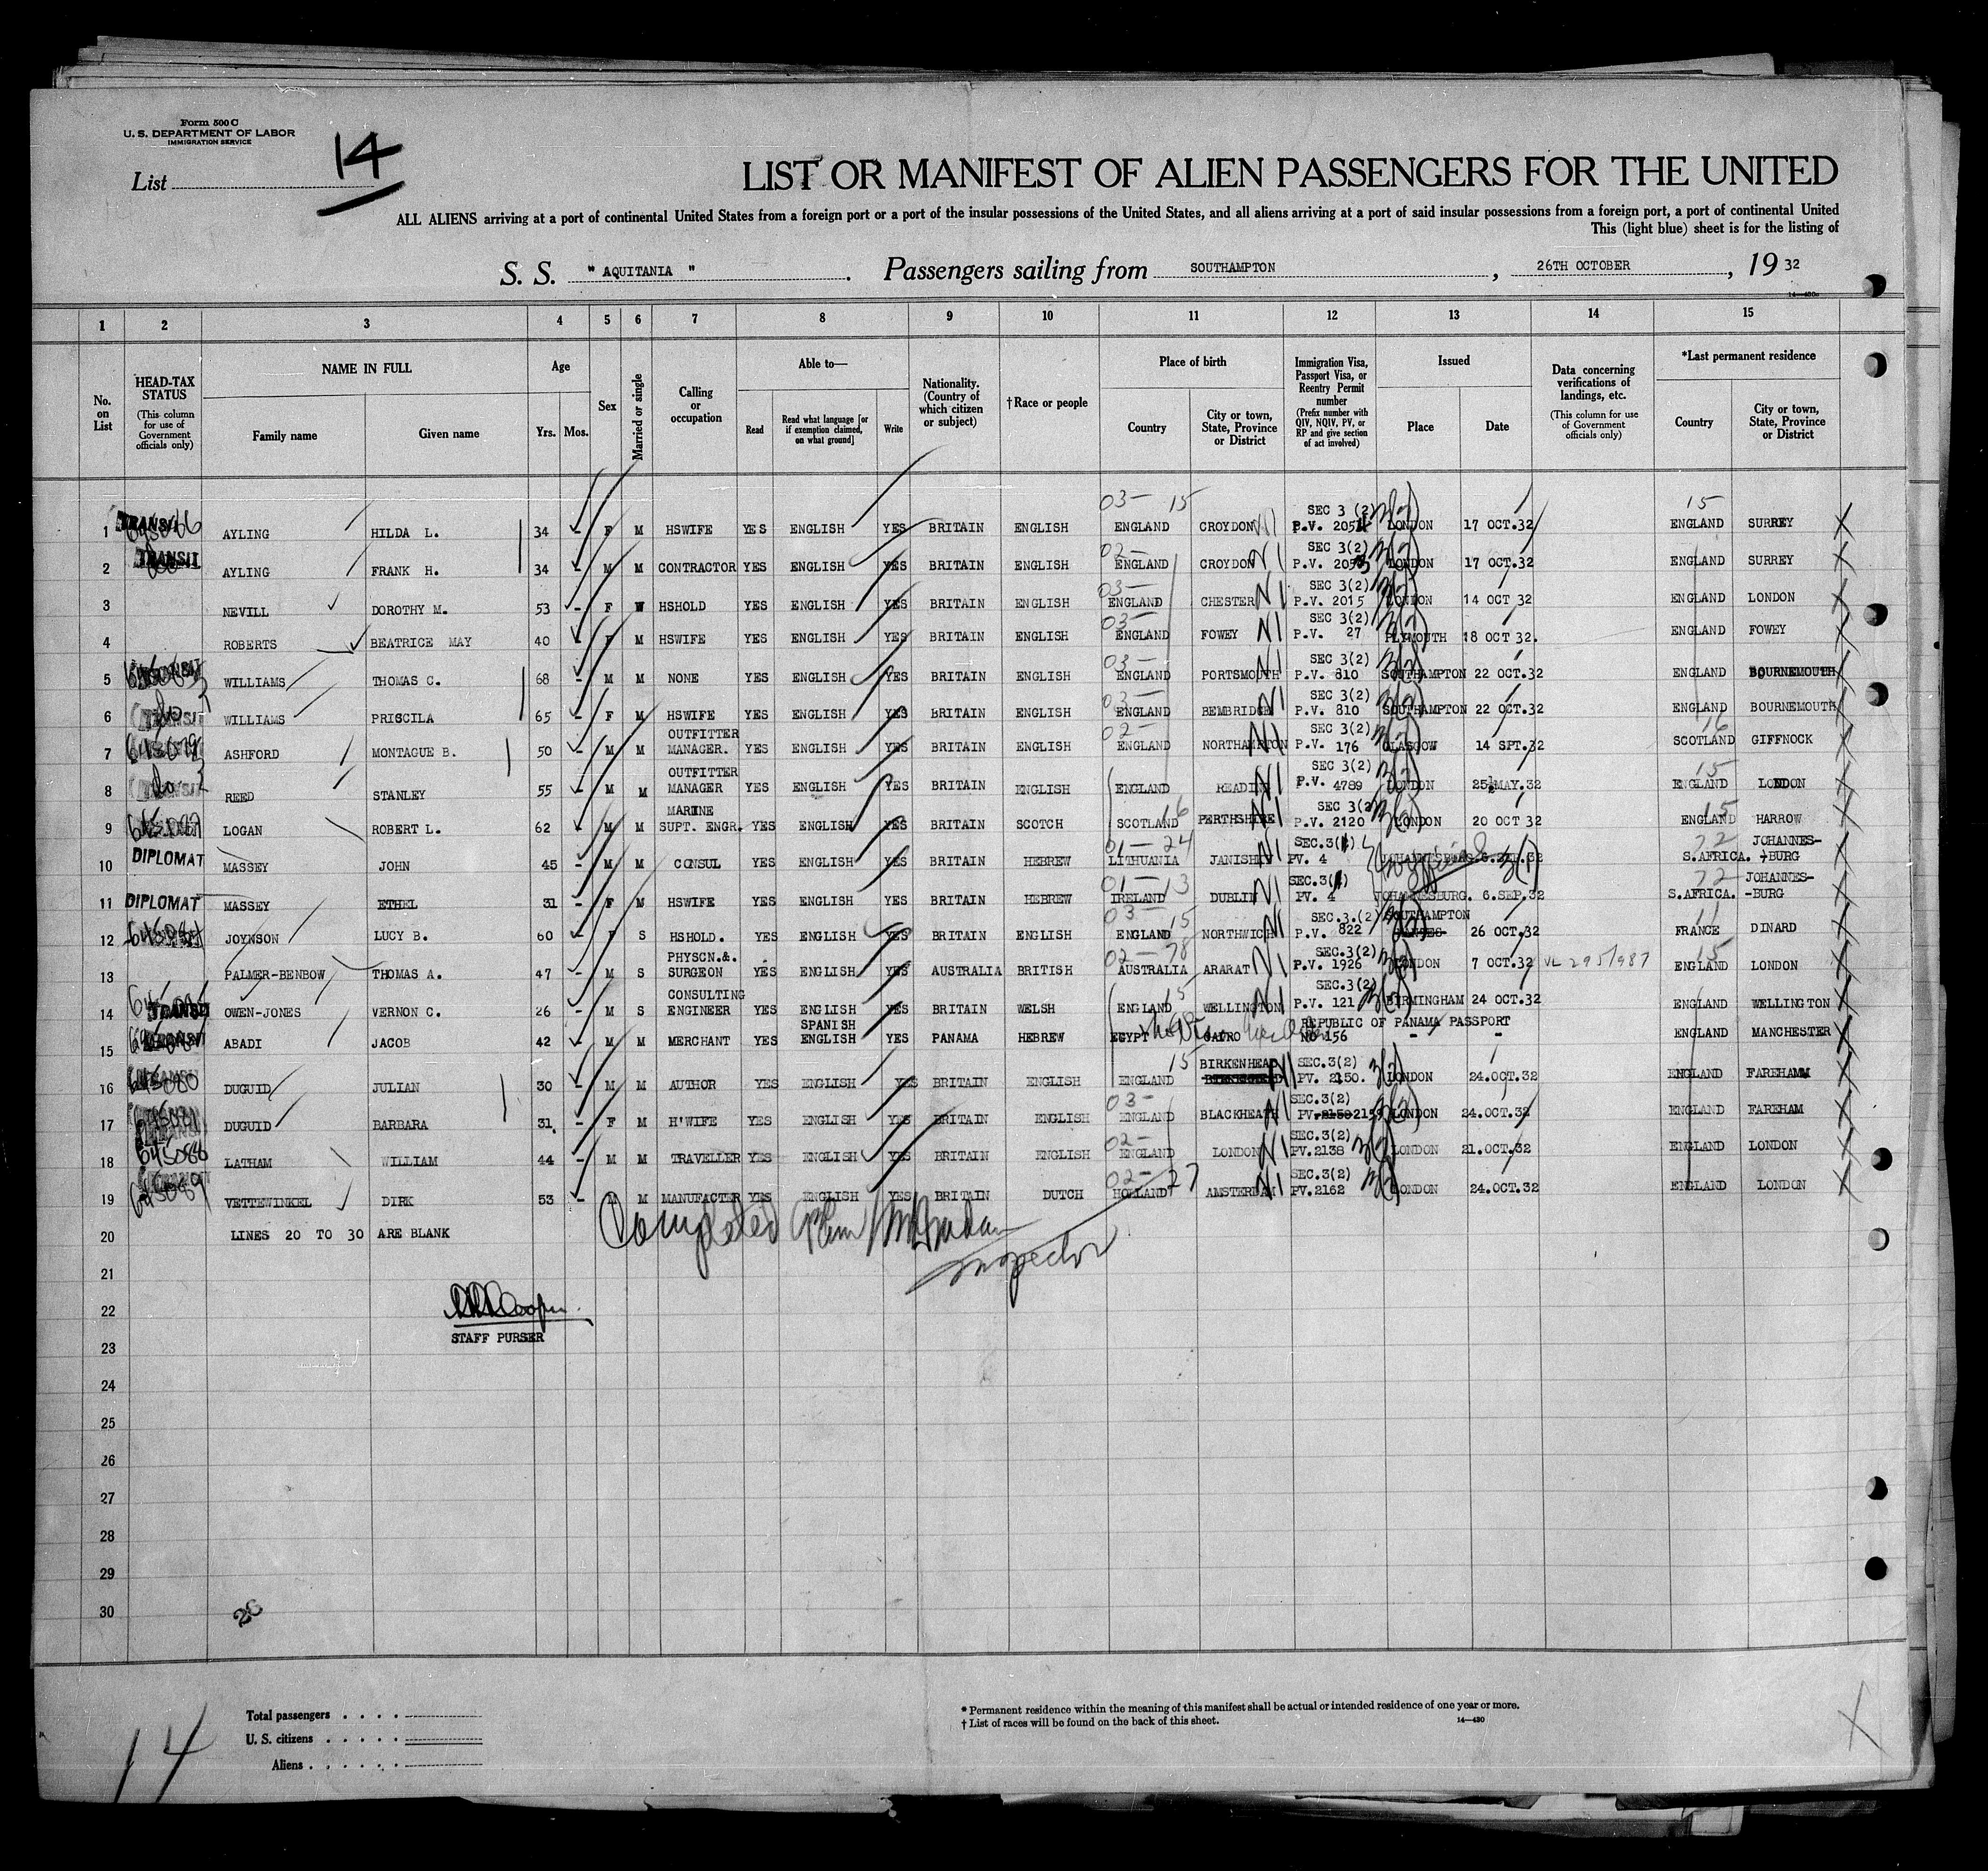 Form 500 C
U. S. DEPARTMENT OF LABOR
IMMIGRATION SERVICE
List 14
LIST OR MANIFEST OF ALIEN PASSENGERS FOR THE UNITED
ALL ALIENS arriving at a port of continental United States from a foreign port or a port of the insular possessions of the United States, and all aliens arriving at a port of said insular possessions from a foreign port, a port of continental United
This (light blue) sheet is for the listing of
S. S. " AQUITANIA " . Passengers sailing from SOUTHAMPTON , 26TH OCTOBER , 19 32
14—430
1 2 3 4 5 6 7 8 9 10 11 12 13 14 15
No. on List
HEAD-TAX STATUS (This column for use of Government officials only)
NAME IN FULL Family name Given name
Age Yrs. Mos.
Sex
Married or single
Calling or occupation
Able to— Read Read what language [or if exemption claimed, on what ground] Write
Nationality. (Country of which citizen or subject)
†Race or people
Place of birth Country City or town, State, Province or District
Immigration Visa, Passport Visa, or Reentry Permit number (Prefix number with QIV, NQIV, PV, or RP and give section of act involved)
Issued Place Date
Data concerning verifications of landings, etc. (This column for use of Government officials only)
*Last permanent residence Country City or town, State, Province or District
1 TRANSIT AYLING HILDA L. 34 - F M HSWIFE YES ENGLISH YES BRITAIN ENGLISH 03— 15 ENGLAND CROYDON NI SEC 3 (2) P.V. 3(2) LONDON 17 OCT.32 15 ENGLAND SURREY X
2 TRANSIT AYLING FRANK H. 34 - M M CONTRACTOR YES ENGLISH YES BRITAIN ENGLISH 02— ENGLAND CROYDON NI SEC 3(2) P.V. 3(2) LONDON 17 OCT.32 ENGLAND SURREY X
3 NEVILL DOROTHY M. 53 - F W HSHOLD YES ENGLISH YES BRITAIN ENGLISH 03— ENGLAND CHESTER NI SEC 3(2) P.V. 2015 3(2) LONDON 14 OCT 32 ENGLAND LONDON X
4 ROBERTS BEATRICE MAY 40 - F M HSWIFE YES ENGLISH YES BRITAIN ENGLISH 03— ENGLAND FOWEY NI SEC 3(2) P.V. 27 3(2) PLYMOUTH 18 OCT 32. ENGLAND FOWEY X
5 WILLIAMS THOMAS C. 68 - M M NONE YES ENGLISH YES BRITAIN ENGLISH 03— ENGLAND PORTSMOUTH NI SEC 3(2) P.V. 810 3(2) SOUTHAMPTON 22 OCT.32 ENGLAND BOURNEMOUTH X
6 do WILLIAMS PRISCILA 65 - F M HSWIFE YES ENGLISH YES BRITAIN ENGLISH 03— ENGLAND BEMBRIDGE NI SEC 3(2) P.V. 810 3(2) SOUTHAMPTON 22 OCT.32 ENGLAND BOURNEMOUTH X
7 ASHFORD MONTAGUE B. 50 - M M OUTFITTER MANAGER. YES ENGLISH YES BRITAIN ENGLISH 02— ENGLAND NORTHAMPTON NI SEC 3(2) P.V. 176 3(2) GLASGOW 14 SPT.32 16 SCOTLAND GIFFNOCK X
8 do REED STANLEY 55 - M M OUTFITTER MANAGER YES ENGLISH YES BRITAIN ENGLISH ENGLAND READING NI SEC 3(2) P.V. 4789 3(2) LONDON MAY.32 15 ENGLAND LONDON X
9 LOGAN ROBERT L. 62 - M M MARINE SUPT. ENGR. YES ENGLISH YES BRITAIN SCOTCH SCOTLAND 16 PERTHSHIRE NI SEC 3(2) P.V. 2120 3(2) LONDON 20 OCT 32 15 ENGLAND HARROW X
10 DIPLOMAT MASSEY JOHN 45 - M M CONSUL YES ENGLISH YES BRITAIN HEBREW 01— 24 LITHUANIA NI SEC.3(1) PV. 4 official 3(1) JOHANNESBURG 6.SEP.32 72 S.AFRICA. JOHANNES- BURG X
11 DIPLOMAT MASSEY ETHEL 31 - F M HSWIFE YES ENGLISH YES BRITAIN HEBREW 01— 13 IRELAND DUBLIN NI SEC.3(1) PV. 4 JOHANNESBURG. 6.SEP.32 72 S.AFRICA. JOHANNES- -BURG X
12 JOYNSON LUCY B. 60 - F S HSHOLD. YES ENGLISH YES BRITAIN ENGLISH 03— 15 ENGLAND NORTHWICH NI SEC.3.(2) P.V. 822 3(2) SOUTHAMPTON 26 OCT.32 11 FRANCE DINARD X
13 PALMER-BENBOW THOMAS A. 47 - M S PHYSCN.&. SURGEON YES ENGLISH YES AUSTRALIA BRITISH 02— 78 AUSTRALIA ARARAT NI SEC.3(2) P.V. 1926 3(2) LONDON 7 OCT.32 VL 295/987 15 ENGLAND LONDON X
14 TRANSIT OWEN-JONES VERNON C. 26 - M S CONSULTING ENGINEER YES ENGLISH YES BRITAIN WELSH 15 ENGLAND WELLINGTON NI SEC.3(2) P.V. 121 3(2) BIRMINGHAM 24 OCT.32 ENGLAND WELLINGTON X
15 ABADI JACOB 42 - M M MERCHANT YES SPANISH ENGLISH YES PANAMA HEBREW EGYPT CAIRO REPUBLIC OF PANAMA PASSPORT NO 156 - - ENGLAND MANCHESTER X
16 DUGUID JULIAN 30 - M M AUTHOR YES ENGLISH YES BRITAIN ENGLISH 15 ENGLAND BIRKENHEAD NI SEC.3(2) PV. 2150. 3(2) LONDON 24.OCT.32 ENGLAND FAREHAM X
17 DUGUID BARBARA 31. - F M H'WIFE YES ENGLISH YES BRITAIN ENGLISH 03— ENGLAND BLACKHEATH NI SEC.3(2) PV. 2150 2159 3(2) LONDON 24.OCT.32 ENGLAND FAREHAM X
18 645086 LATHAM WILLIAM 44 - M M TRAVELLER YES ENGLISH YES BRITAIN ENGLISH 02— ENGLAND LONDON NI SEC.3(2) PV.2138 3(2) LONDON 21.OCT.32 ENGLAND LONDON X
19 645089 VETTEWINKEL DIRK 53 - M M MANUFACTER YES ENGLISH YES BRITAIN DUTCH 02— 27 HOLLAND AMSTERDAM NI SEC.3(2) PV.2162 3(2) LONDON 24.OCT.32 ENGLAND LONDON X
20 LINES 20 TO 30 ARE BLANK
Completed
Inspector
21
22
Cooper
STAFF PURSER
23
24
25
26
27
28
29
30
26
14
Total passengers . . . .
U. S. citizens . . . . .
Aliens . . . . . .
* Permanent residence within the meaning of this manifest shall be actual or intended residence of one year or more.
† List of races will be found on the back of this sheet. 14—430
X